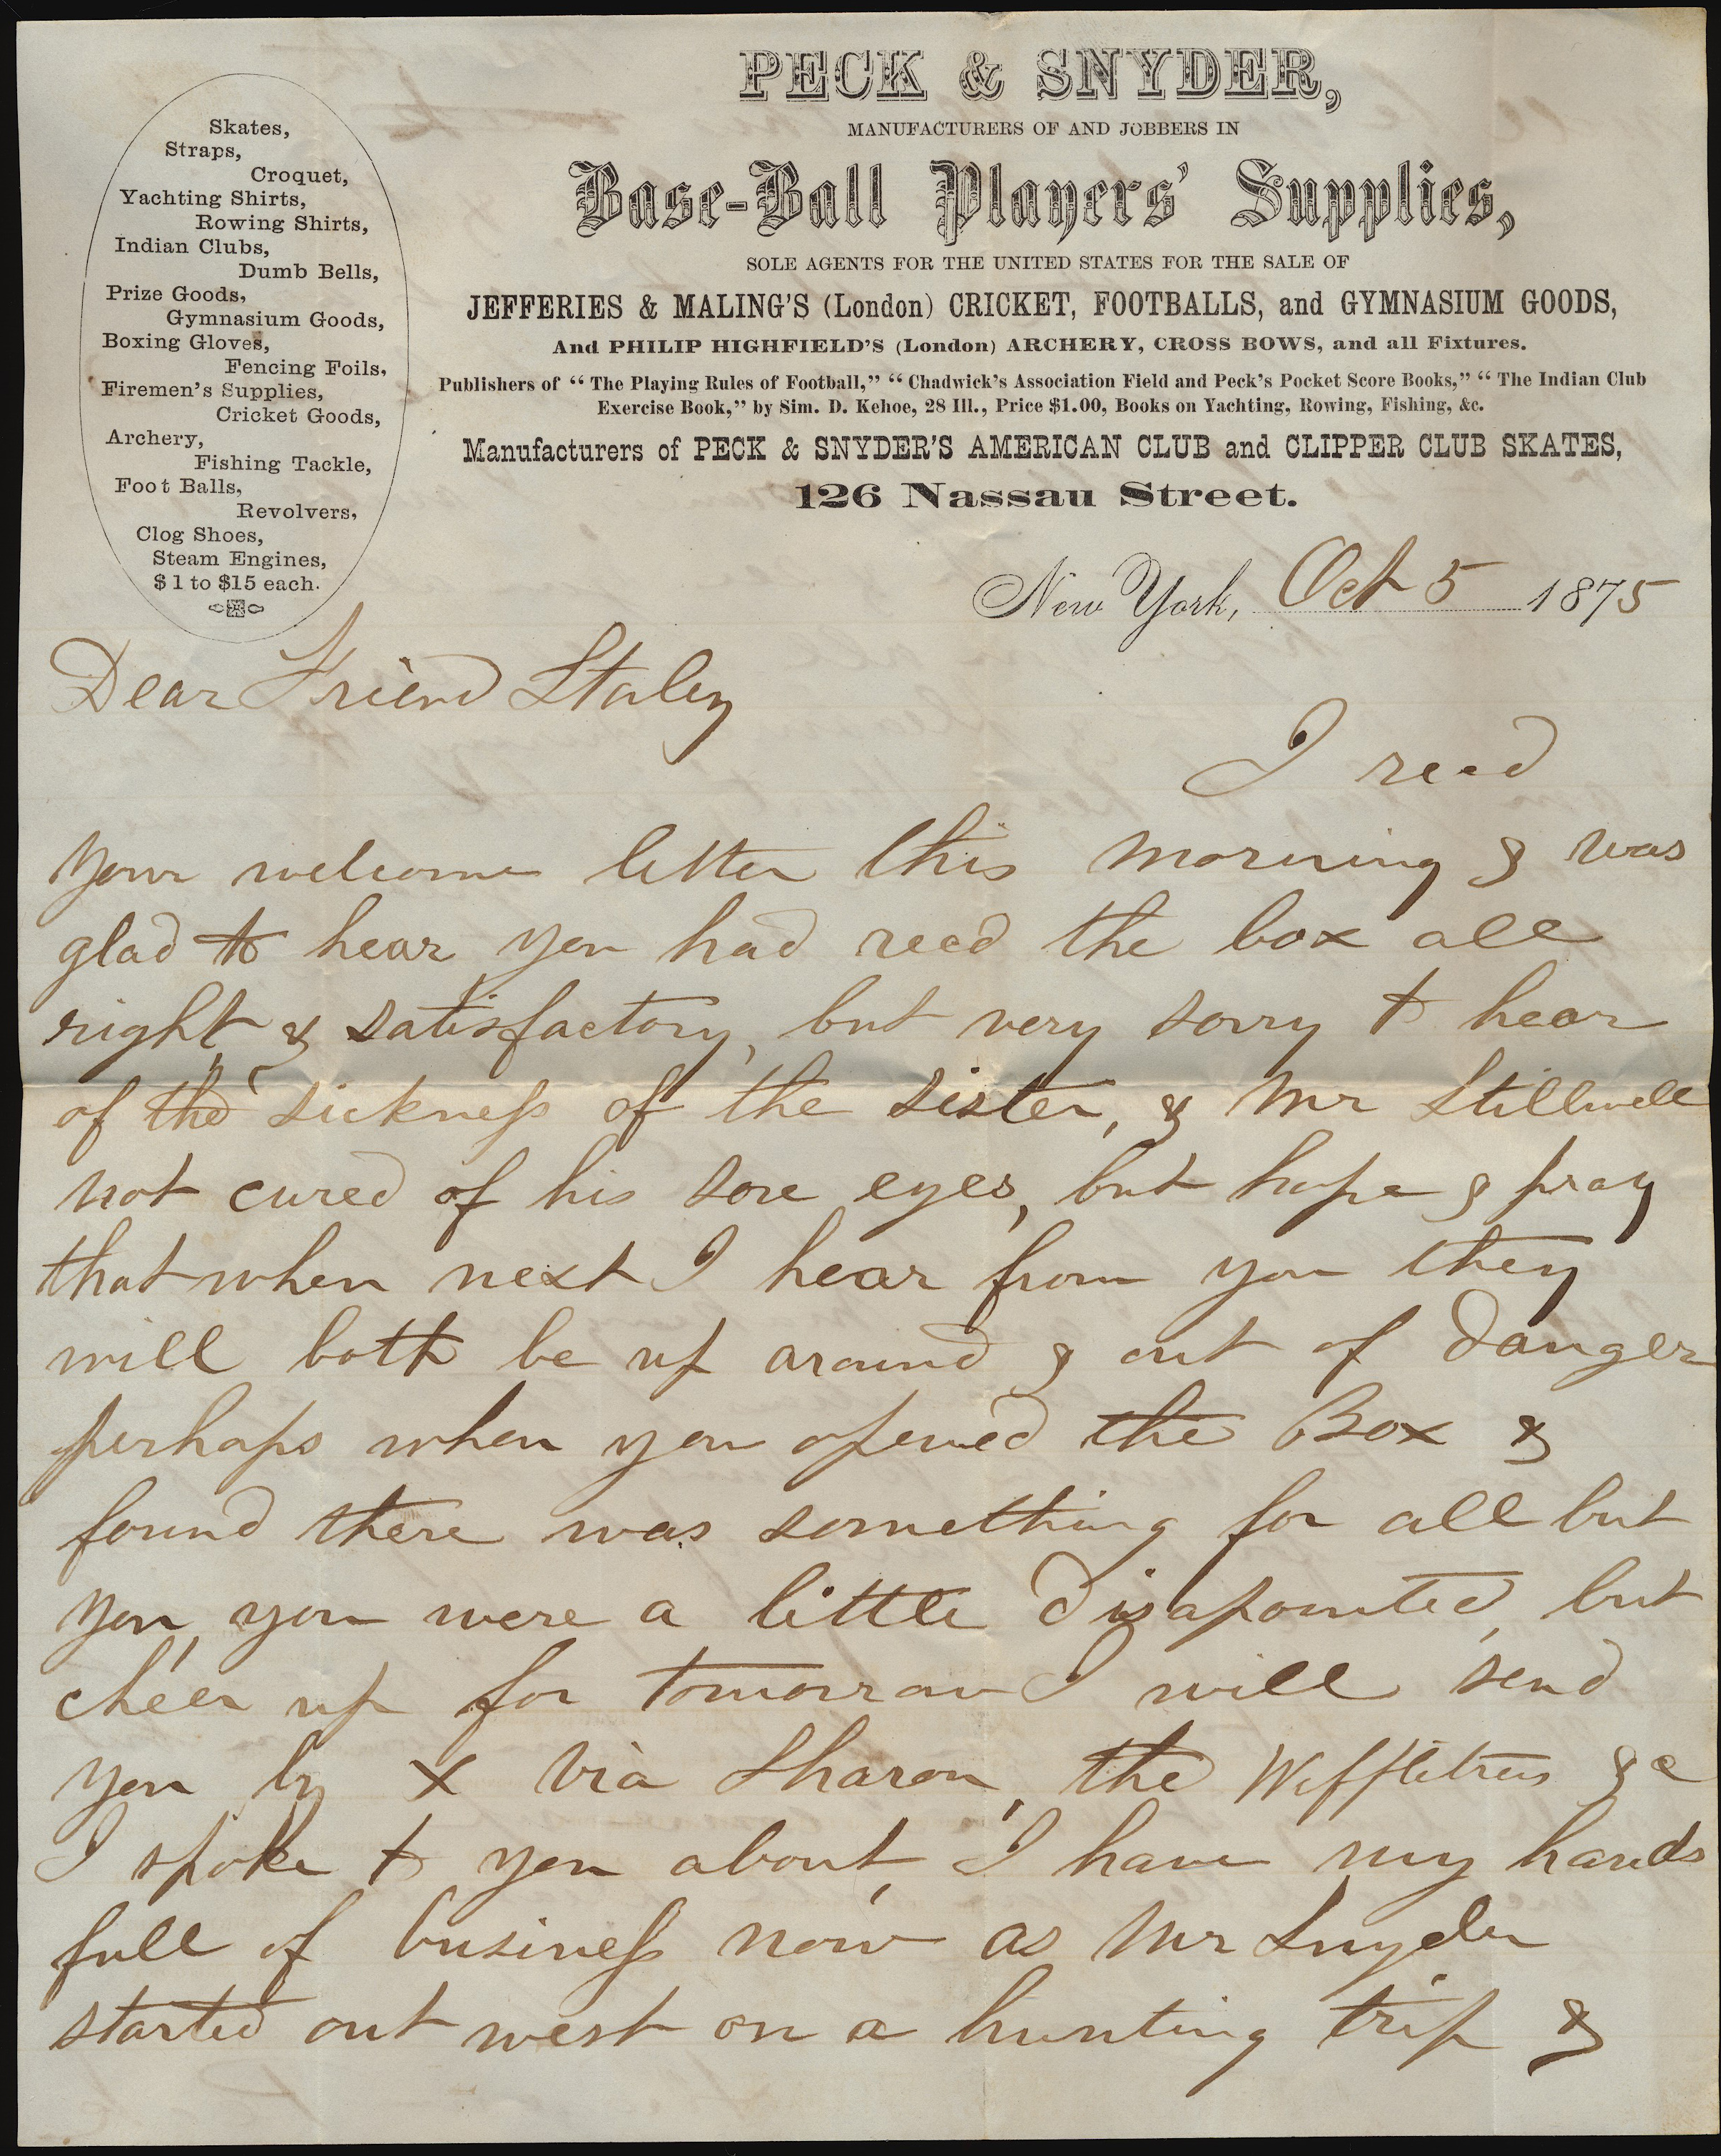 PECK & SNYDER,
MANUFACTURERS OF AND JOBBERS IN
Base-Ball Players' Supplies,
SOLE AGENTS FOR THE UNITED STATES FOR THE SALE OF
JEFFERIES & MALING'S (London) CRICKET, FOOTBALLS, and GYMNASIUM GOODS,
And PHILIP HIGHFIELD'S (London) ARCHERY, CROSS BOWS, and all Fixtures.
Publishers of "The Playing Rules of Football," "Chadwick's Association Field and Peck's Pocket Score Books," "The Indian Club
Exercise Book," by Sim. D. Kehoe, 28 Ill., Price $1.00, Books on Yachting, Rowing, Fishing, &c.
Manufacturers of PECK & SNYDER'S AMERICAN CLUB and CLIPPER CLUB SKATES,
126 Nassau Street.
Skates,
Straps,
Croquet,
Yachting Shirts,
Rowing Shirts,
Indian Clubs,
Dumb Bells,
Prize Goods,
Gymnasium Goods,
Boxing Gloves,
Fencing Foils,
Firemen's Supplies,
Cricket Goods,
Archery,
Fishing Tackle,
Foot Balls,
Revolvers,
Clog Shoes,
Steam Engines,
$1 to $15 each.
New York, Oct 5 1875
Dear Friend Staley
I recd
your welcome letter this morning & was
glad to hear you had recd the box all
right & satisfactory, but very sorry to hear
of the sickness of the sister, & Mr Stillwell
not cured of his sore eyes, but hope & pray
that when next I hear from you they
will both be up around & out of danger
perhaps when you opened the Box &
found there was something for all but
you, you were a little disapointed, but
cheer up for tomorrow I will send
you by X via Sharon, the Wiffletrees &c
I spoke to you about, I have my hands
full of business now as Mr Snyder
started out west on a hunting trip &